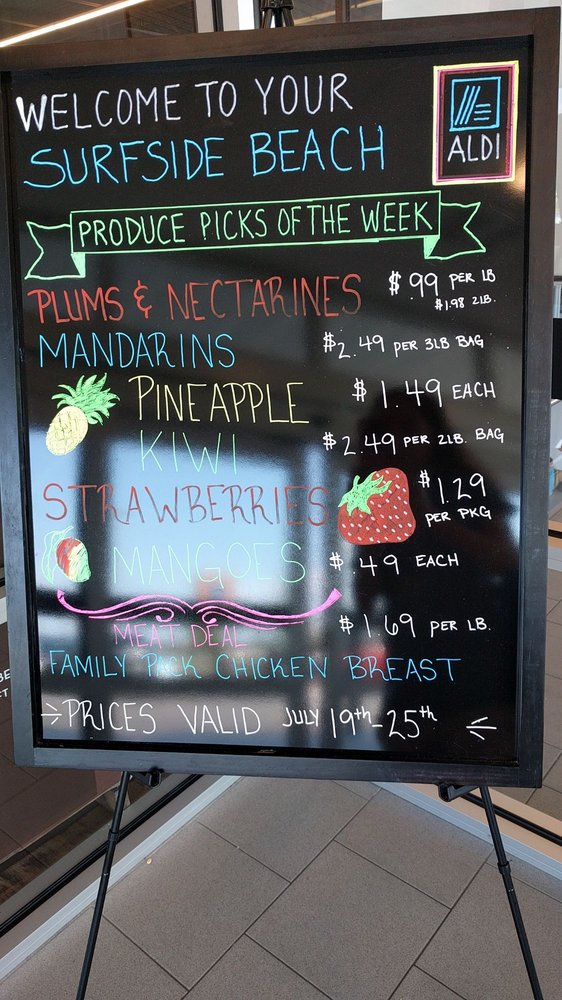 WELCOME TO YOUR
SURFSIDE BEACH
ALDI
PRODUCE PICKS OF THE WEEK
PLUMS & NECTARINES $.99 PER LB
$1.98 2LB.
MANDARINS $2.49 PER 3LB BAG
PINEAPPLE $1.49 EACH
KIWI $2.49 PER 2LB. BAG
STRAWBERRIES $1.29
PER PKG
MANGOES $.49 EACH
MEAT DEAL $1.69 PER LB.
FAMILY PACK CHICKEN BREAST
→PRICES VALID JULY 19th-25th ←